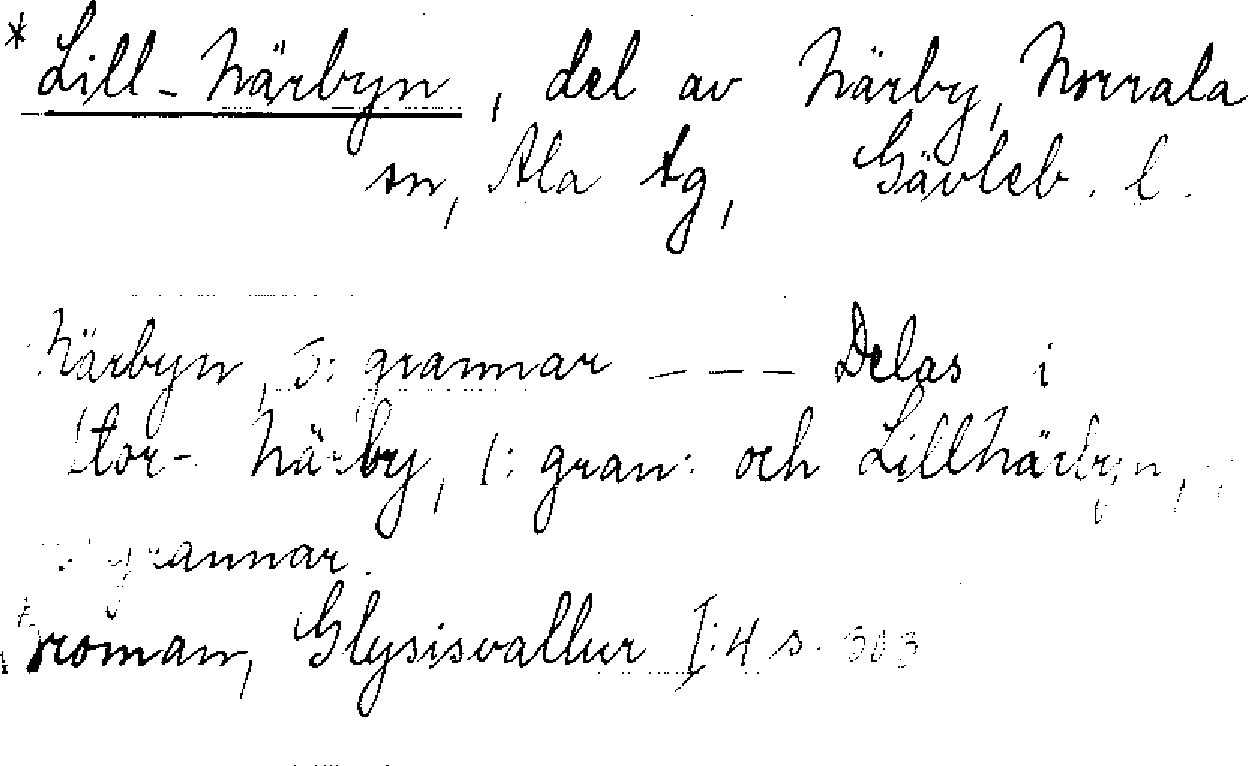 * Lill-Närbyn, del av Närby, Norrala
sn, Ala tg, Gävleb. l.
Närbyn, 5: grannar --- Delas i
Stor- Närby, 1: gran: och LillNärbyn,
grannar.
Broman, Glysisvallur I:4 s. 303